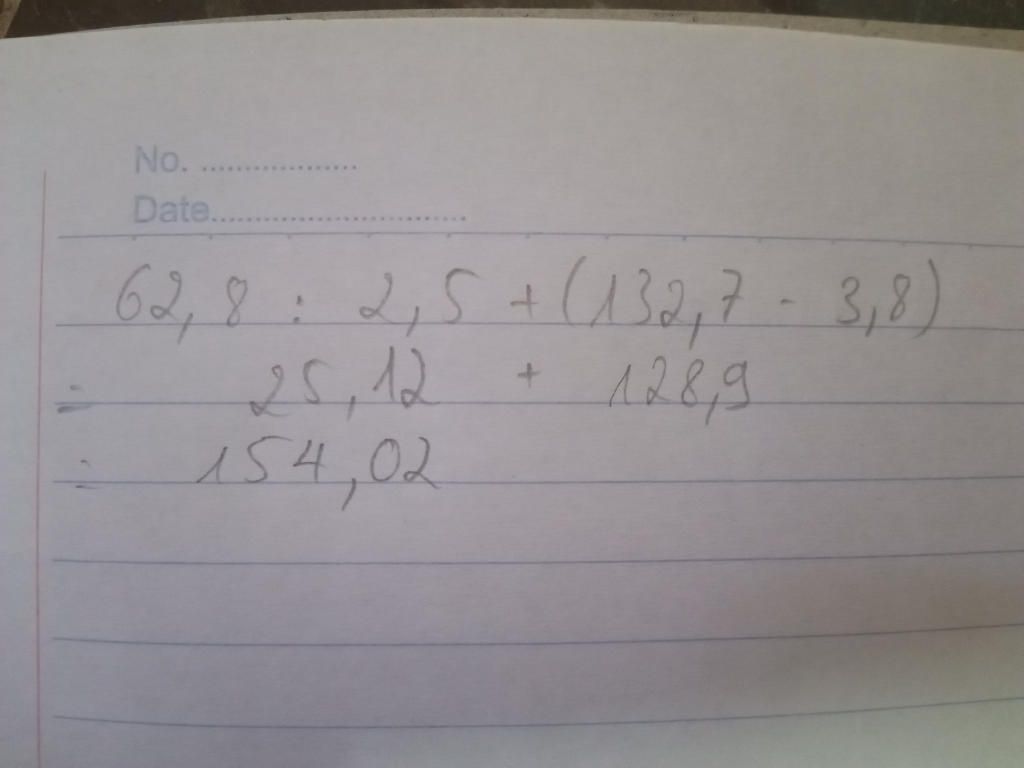 No. ..................
Date............................
62,8 : 2,5 + (132,7 - 3,8)
= 25,12 + 128,9
= 154,02